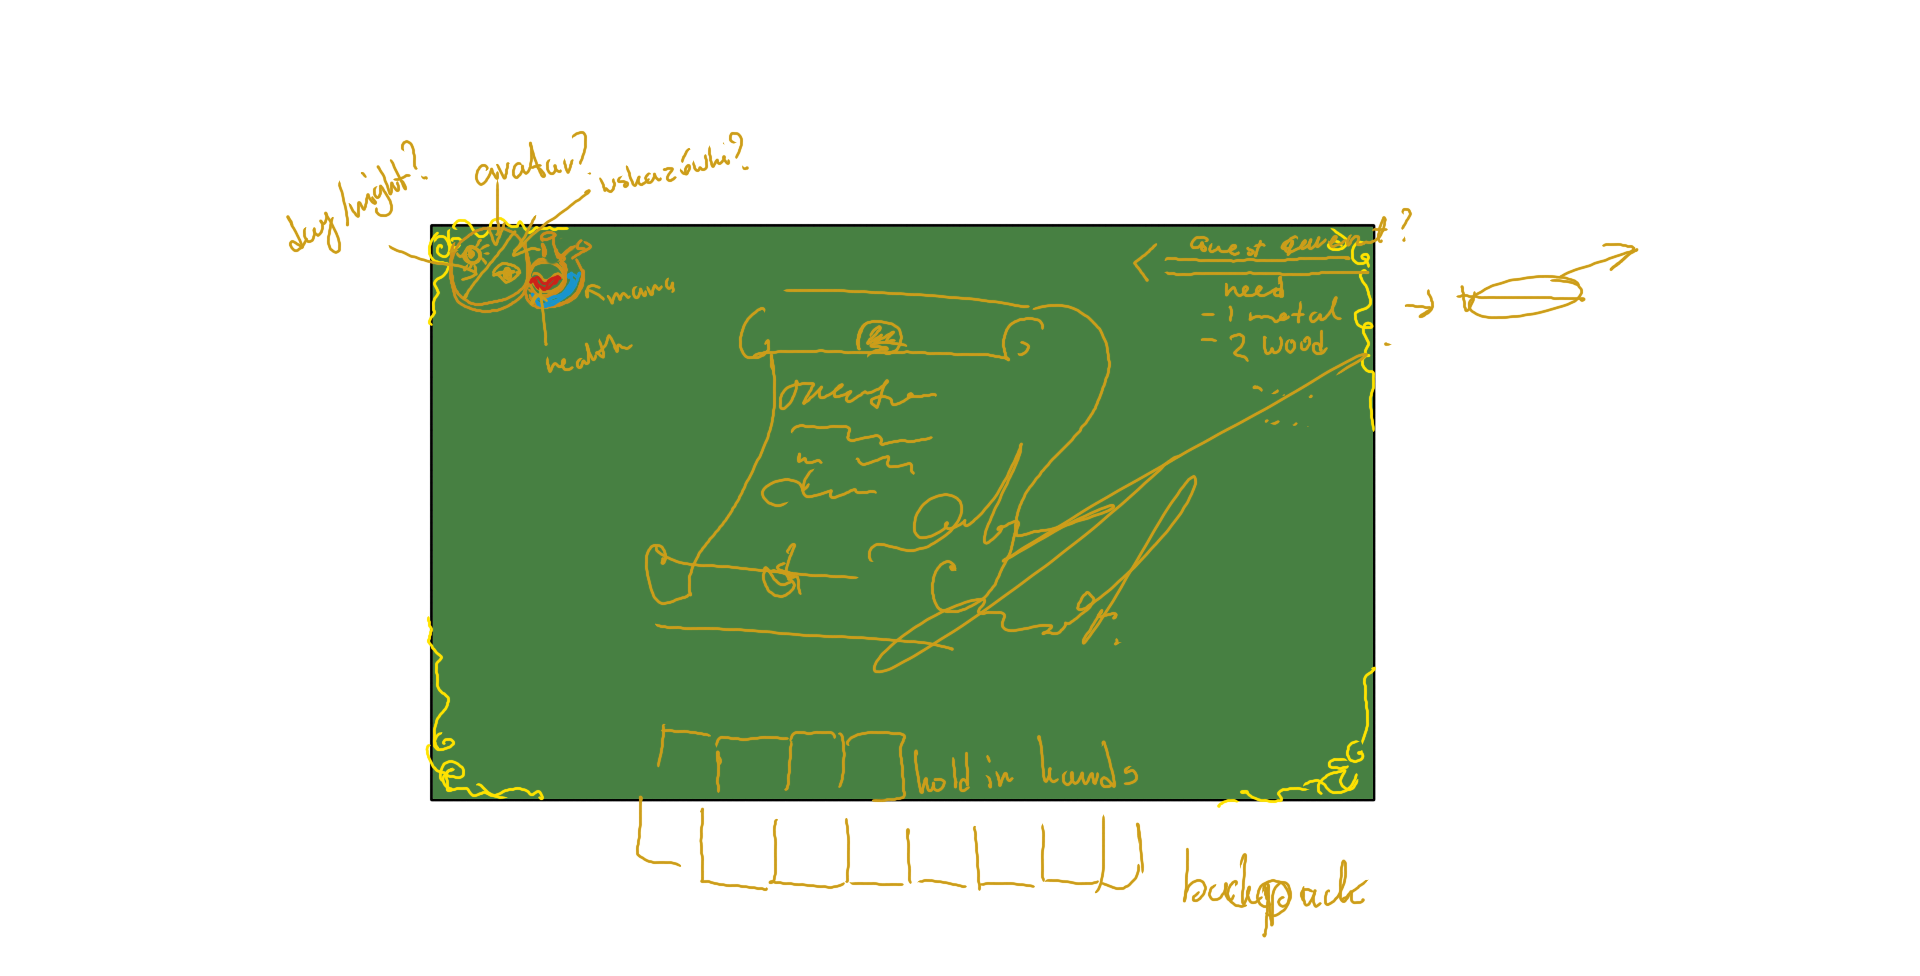 day/night?
avatar?
wskazówki?
mana
health
Quest
need
- 1 metal
- 2 wood
hold in hands
backpack